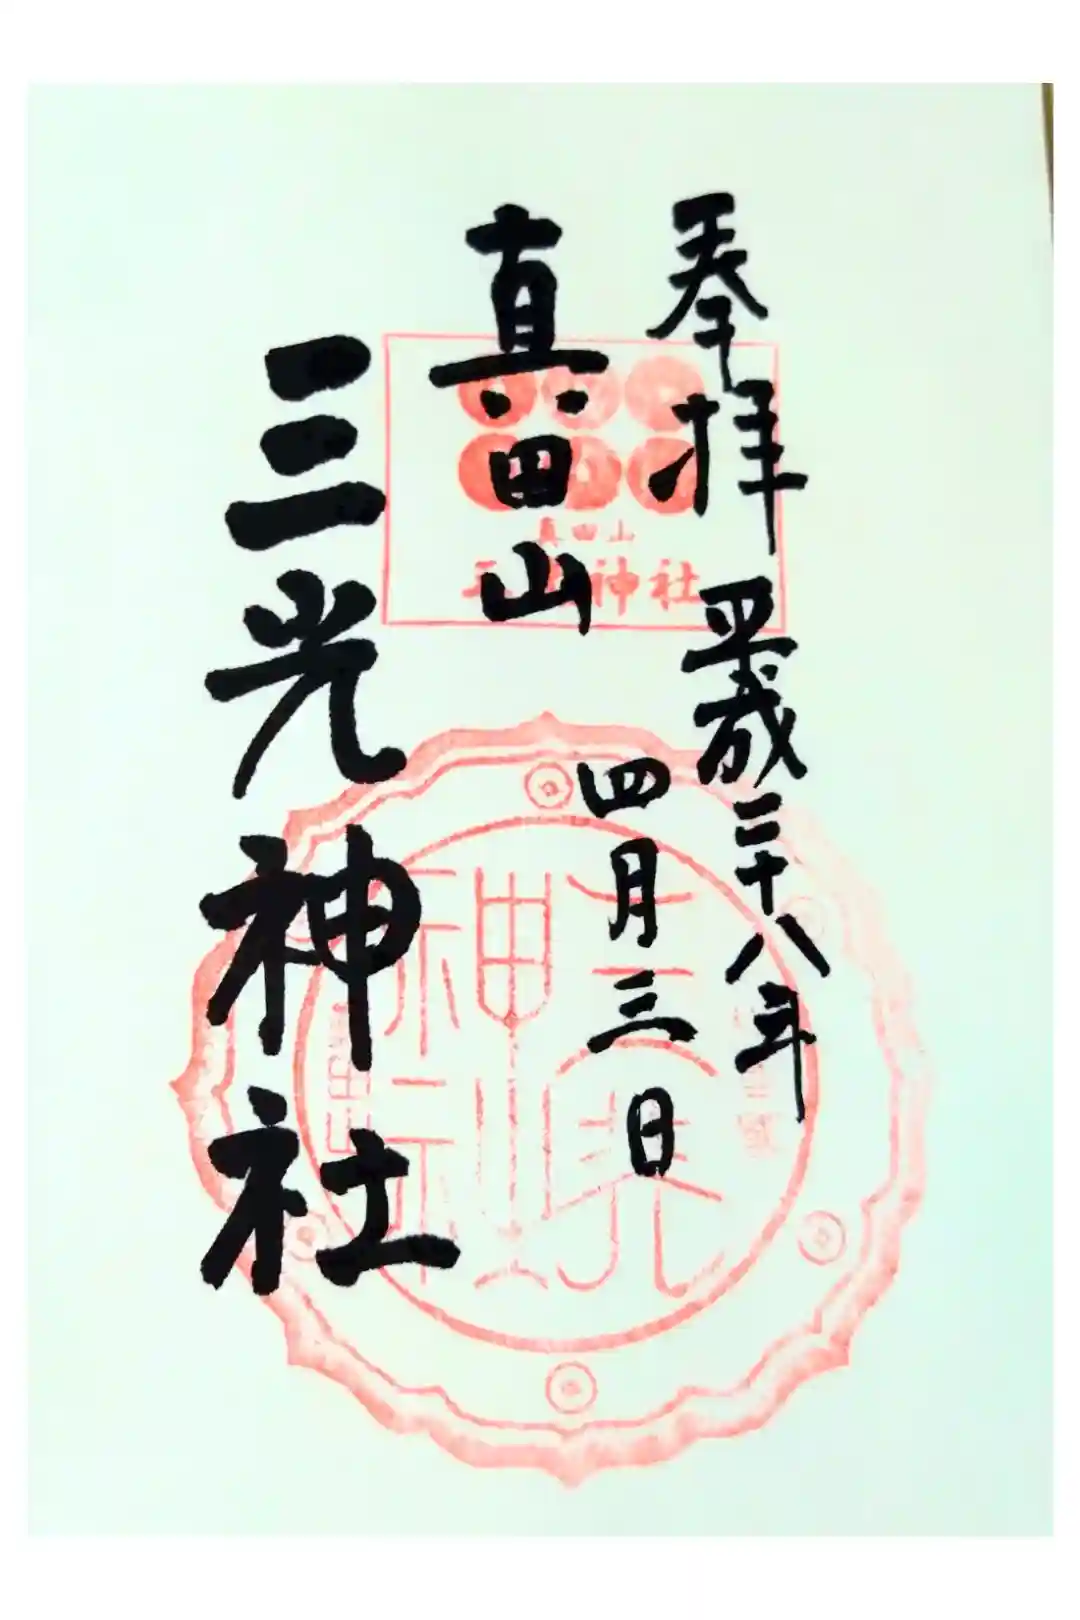 奉拝 平成二十八年
四月三日
真田山
三光神社
真田山
三光神社
三光神社